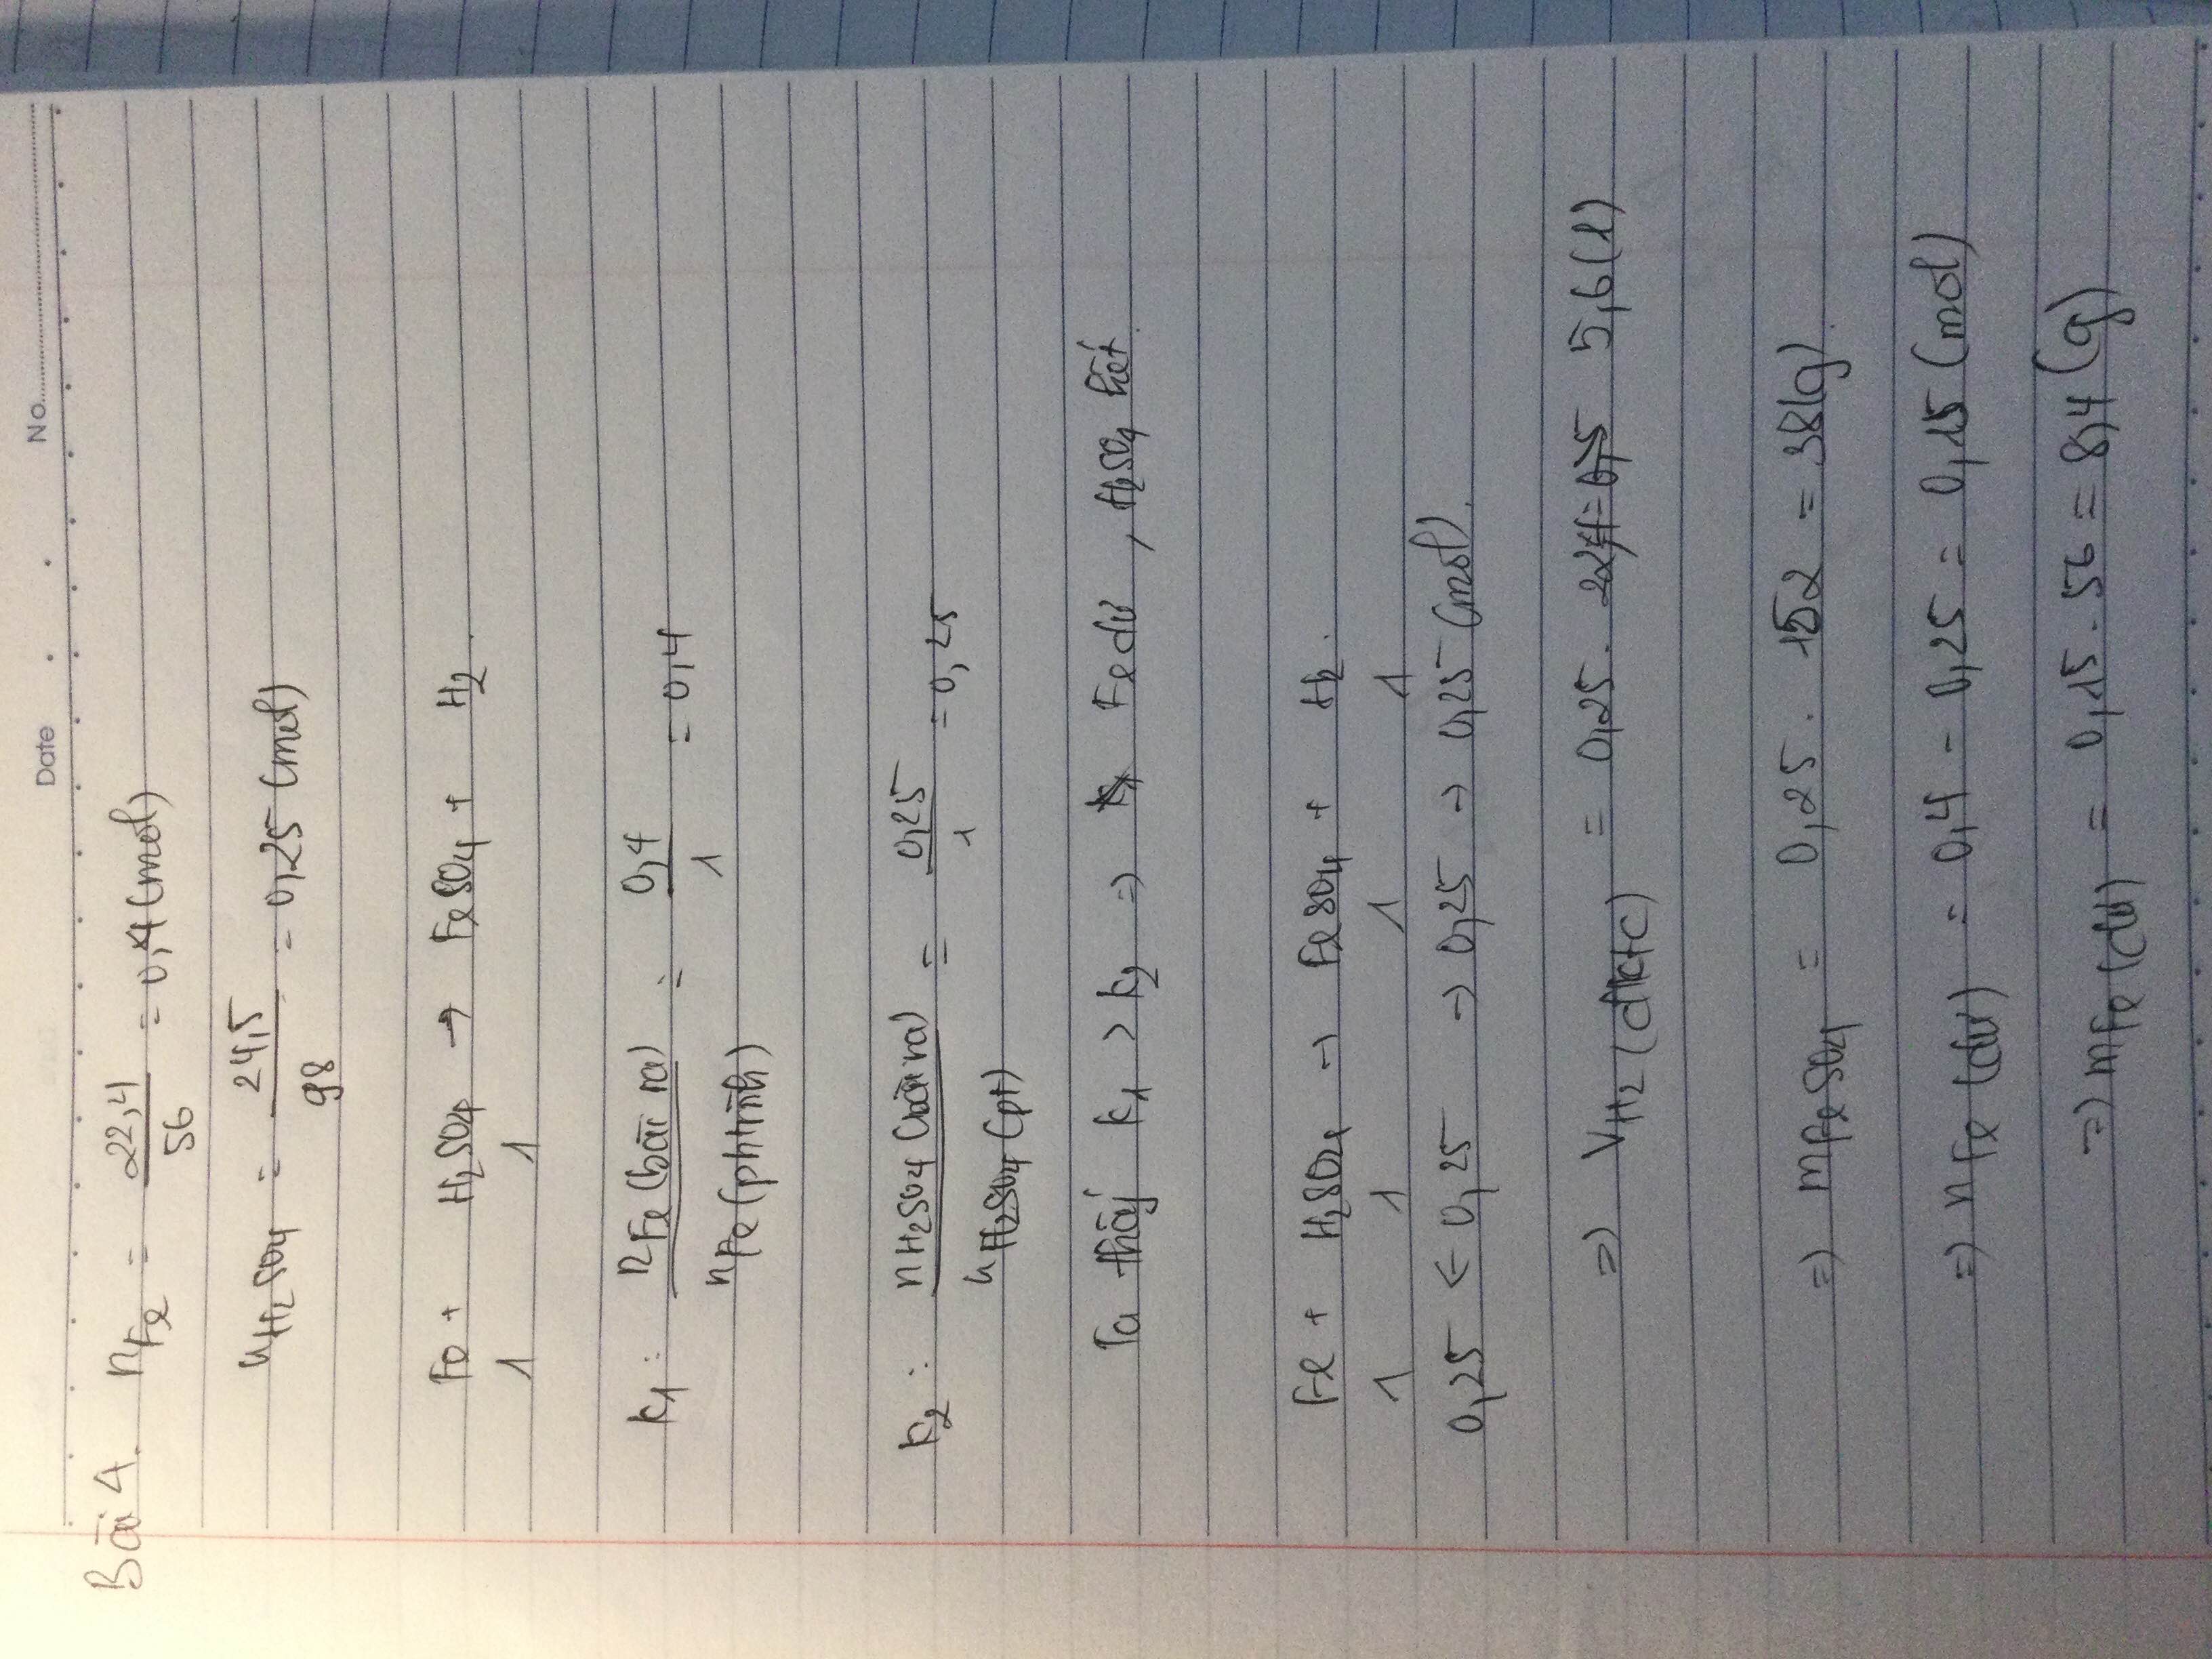 Date No
Bài 4. nFe = 22,4/56 = 0,4 (mol)
nH2SO4 = 24,5/98 = 0,25 (mol)
Fe + H2SO4 → FeSO4 + H2.
1 1
k1 : nFe (bài ra)/nFe (phtrình) = 0,4/1 = 0,4
k2 : nH2SO4 (bài ra)/nH2SO4 (pt) = 0,25/1 = 0,25
Ta thấy k1 > k2 => Fe dư, H2SO4 hết.
Fe + H2SO4 → FeSO4 + H2.
1 1 1 1
0,25 ← 0,25 → 0,25 → 0,25 (mol).
=> VH2 (đktc) = 0,25. 5,6 (l)
=> mFeSO4 = 0,25. 152 = 38(g).
=> nFe (dư) = 0,4 - 0,25 = 0,15 (mol)
=> mFe (dư) = 0,15. 56 = 8,4 (g)